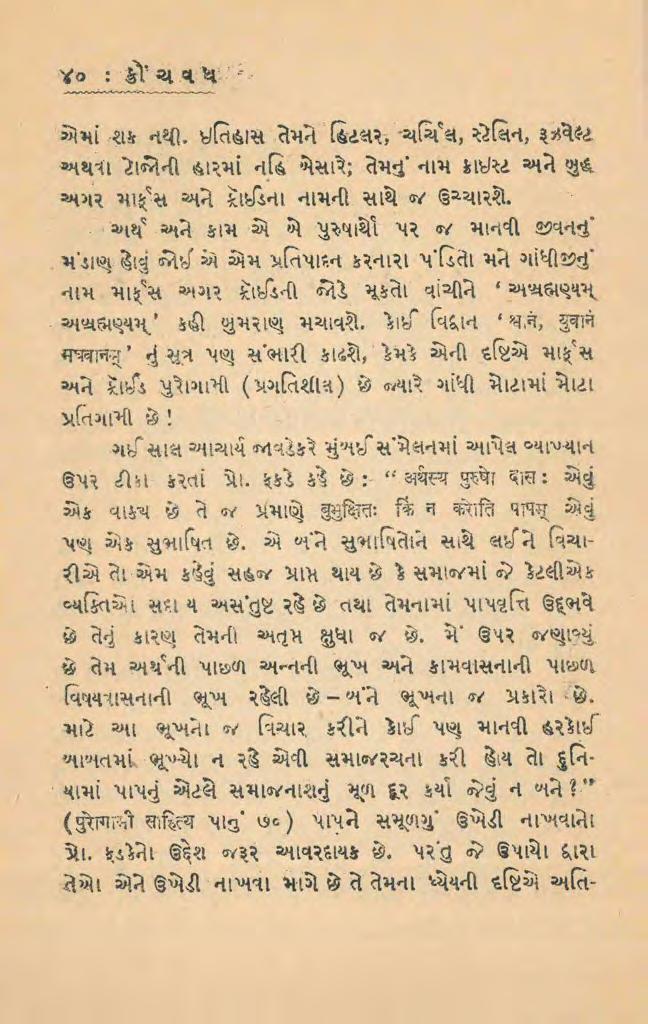 ૪૦ : ક્રૌંચવધ
એમાં શક નથી. ઇતિહાસ તેમને હિટલર, ચર્ચિલ, સ્ટેલિન, રૂઝવેલ્ટ
અથવા ટોજોની હારમાં નહિ બેસારે; તેમનું નામ ક્રાઇસ્ટ અને બુદ્ધ
અગર માર્ક્સ અને ફ્રૉઈડના નામની સાથે જ ઉચ્ચારશે.
અર્થ અને કામ એ બે પુરુષાર્થો પર જ માનવી જીવનનું
મંડાણ હોવું જોઈ એ એમ પ્રતિપાદન કરનારા પંડિતો મને ગાંધીજીનું
નામ માર્ક્સ અગર ફ્રૉઈડની જોડે મૂકતો વાંચીને ‘ અબ્રહ્મણ્યમ્
અબ્રહ્મણ્યમ્ ’ કહી બુમરાણ મચાવશે. કોઈ વિદ્વાન ‘ શ્વાનં, युवानं
मघवानम् ’ નું સૂત્ર પણ સંભારી કાઢશે, કેમકે એની દૃષ્ટિએ માર્ક્સ
અને ફ્રૉઈડ પુરોગામી ( પ્રગતિશીલ ) છે જ્યારે ગાંધી મોટામાં મોટા
પ્રતિગામી છે !
ગઈ સાલ આચાર્ય જાવડેકરે મુંબઈ સંમેલનમાં આપેલ વ્યાખ્યાન
ઉપર ટીકા કરતાં પ્રો. ફડકે કહે છે : “ अर्थस्य पुरुषो दास : એવું
એક વાક્ય છે તે જ પ્રમાણે बुभुक्षितः किं न करोति पापम् એવું
પણ એક સુભાષિત છે. એ બંને સુભાષિતોને સાથે લઈ ને વિચા-
રીએ તો એમ કહેવું સહજ પ્રાપ્ત થાય છે કે સમાજમાં જે કેટલીએક
વ્યક્તિઓ સદા ય અસંતુષ્ટ રહે છે તથા તેમનામાં પાપવૃત્તિ ઉદ્ભવે
છે તેનું કારણ તેમની અતૃપ્ત ક્ષુધા જ છે. મેં ઉપર જણાવ્યું
છે તેમ અર્થની પાછળ અન્નની ભૂખ અને કામવાસનાની પાછળ
વિષયવાસનાની ભૂખ રહેલી છે – બંને ભૂખના જ પ્રકારો છે.
માટે આ ભૂખનો જ વિચાર કરીને કોઈ પણ માનવી હરકોઈ
બાબતમાં ભૂખ્યો ન રહે એવી સમાજરચના કરી હોય તો દુનિ-
યામાં પાપનું એટલે સમાજનાશનું મૂળ દૂર કર્યા જેવું ન બને ? ”
( પુરોગામી साहित्य પાનું ૭૦ ) પાપને સમૂળગું ઉખેડી નાખવાનો
પ્રો. ફડકેનો ઉદ્દેશ જરૂર આવરદાયક છે. પરંતુ જે ઉપાયો દ્વારા
તેઓ એને ઉખેડી નાખવા માગે છે તે તેમના ધ્યેયની દૃષ્ટિએ અતિ-